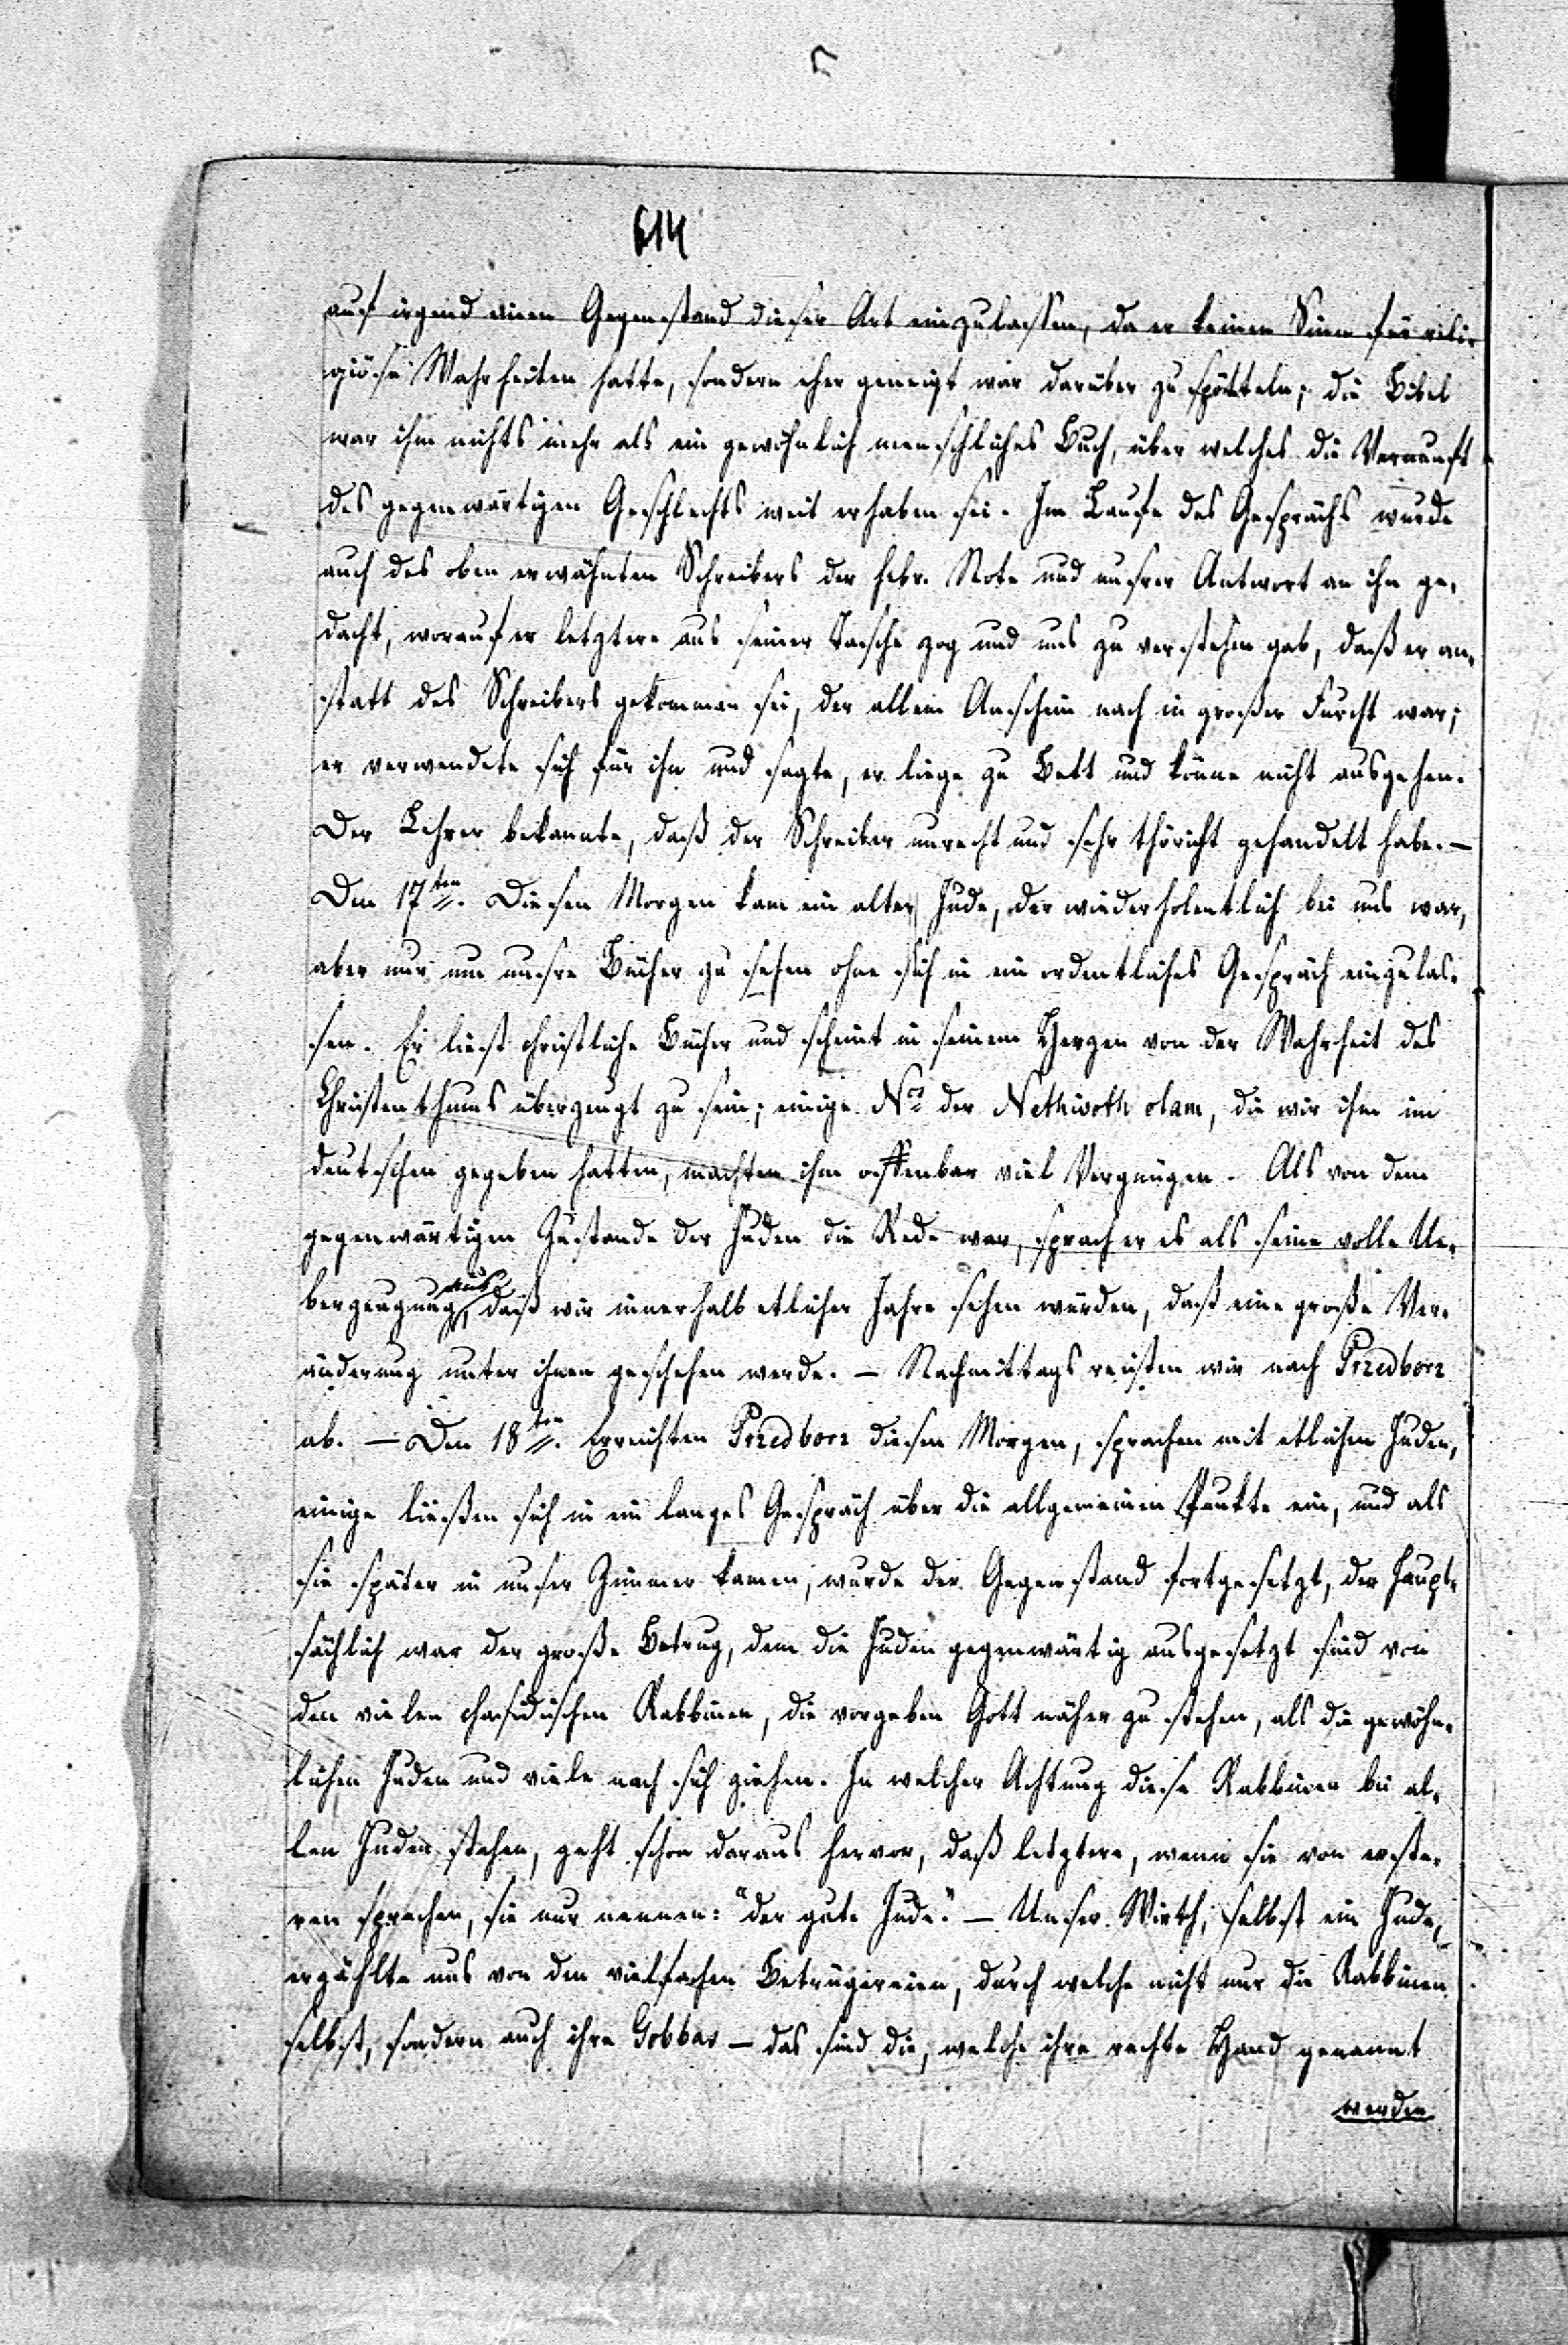 614
auf irgend einen Gegenstand dieser Art einzulassen, da er keinen Sinn für reli-
giöse Wahrheiten hatte, sondern eher geneigt war darüber zu spötteln; die Bibel
war ihm nichts mehr als ein gewöhnlich menschliches Buch, über welches die Vernunft
des gegenwärtigen Geschlechts weit erhaben sei. Im Laufe des Gesprächs wurde
auch des oben erwähnten Schreibers der hebr. Note und unsrer Antwort an ihn ge-
dacht, worauf er letztere aus seiner Tasche zog und uns zu verstehen gab, daß er an-
statt des Schreibers gekommen sei, der allem Anschein nach in großer Furcht war;
er verwendete sich für ihn und sagte, er liege zu Bett und könne nicht ausgehen.
Der Lehrer bekannte, daß der Schreiber unrecht und sehr thöricht gehandelt habe. –
Den 17ten. Diesen Morgen kam ein alter Jude, der wiederholentlich bei uns war,
aber nur um unsre Bücher zu sehen ohne sich in ein ordentliches Gespräch einzulas-
sen. Er liest christliche Bücher und scheint in seinem Herzen von der Wahrheit des
Christenthums überzeugt zu sein; einige Nos der Nethivoth olam, die wir ihm im
deutschen gegeben hatten, machten ihm offenbar viel Vergnügen. Als von dem
gegenwärtigen Zustande der Juden die Rede war, sprach er es als seine volle Ue-
berzeugung aus, daß wir innerhalb etlicher Jahre sehen würden, daß eine große Ver-
änderung unter ihnen geschehen werde. – Nachmittags reisten wir nach Przedborz
ab. – Den 18ten. Erreichten Przedborz diesen Morgen, sprachen mit etlichen Juden,
einige ließen sich in ein langes Gespräch über die allgemeinen Punkte ein, und als
sie später in unser Zimmer kamen, wurde der Gegenstand fortgesetzt, der haupt-
sächlich war der große Betrug, dem die Juden gegenwärtig ausgesetzt sind von
den vielen chasidischen Rabbinen, die vorgeben Gott näher zu stehen, als die gewöhn-
lichen Juden und viele nach sich ziehen. In welcher Achtung diese Rabbinen bei al-
len Juden stehen, geht schon daraus hervor, daß letztere, wenn sie von erste-
ren sprechen, sie nur nennen: "der gute Jude." – Unser Wirth, selbst ein Jude,
erzählte uns von den vielfachen Betrügereien, durch welche nicht nur die Rabbinen
selbst, sondern auch ihre Gobbas – das sind die, welche ihre rechte Hand genannt
werden